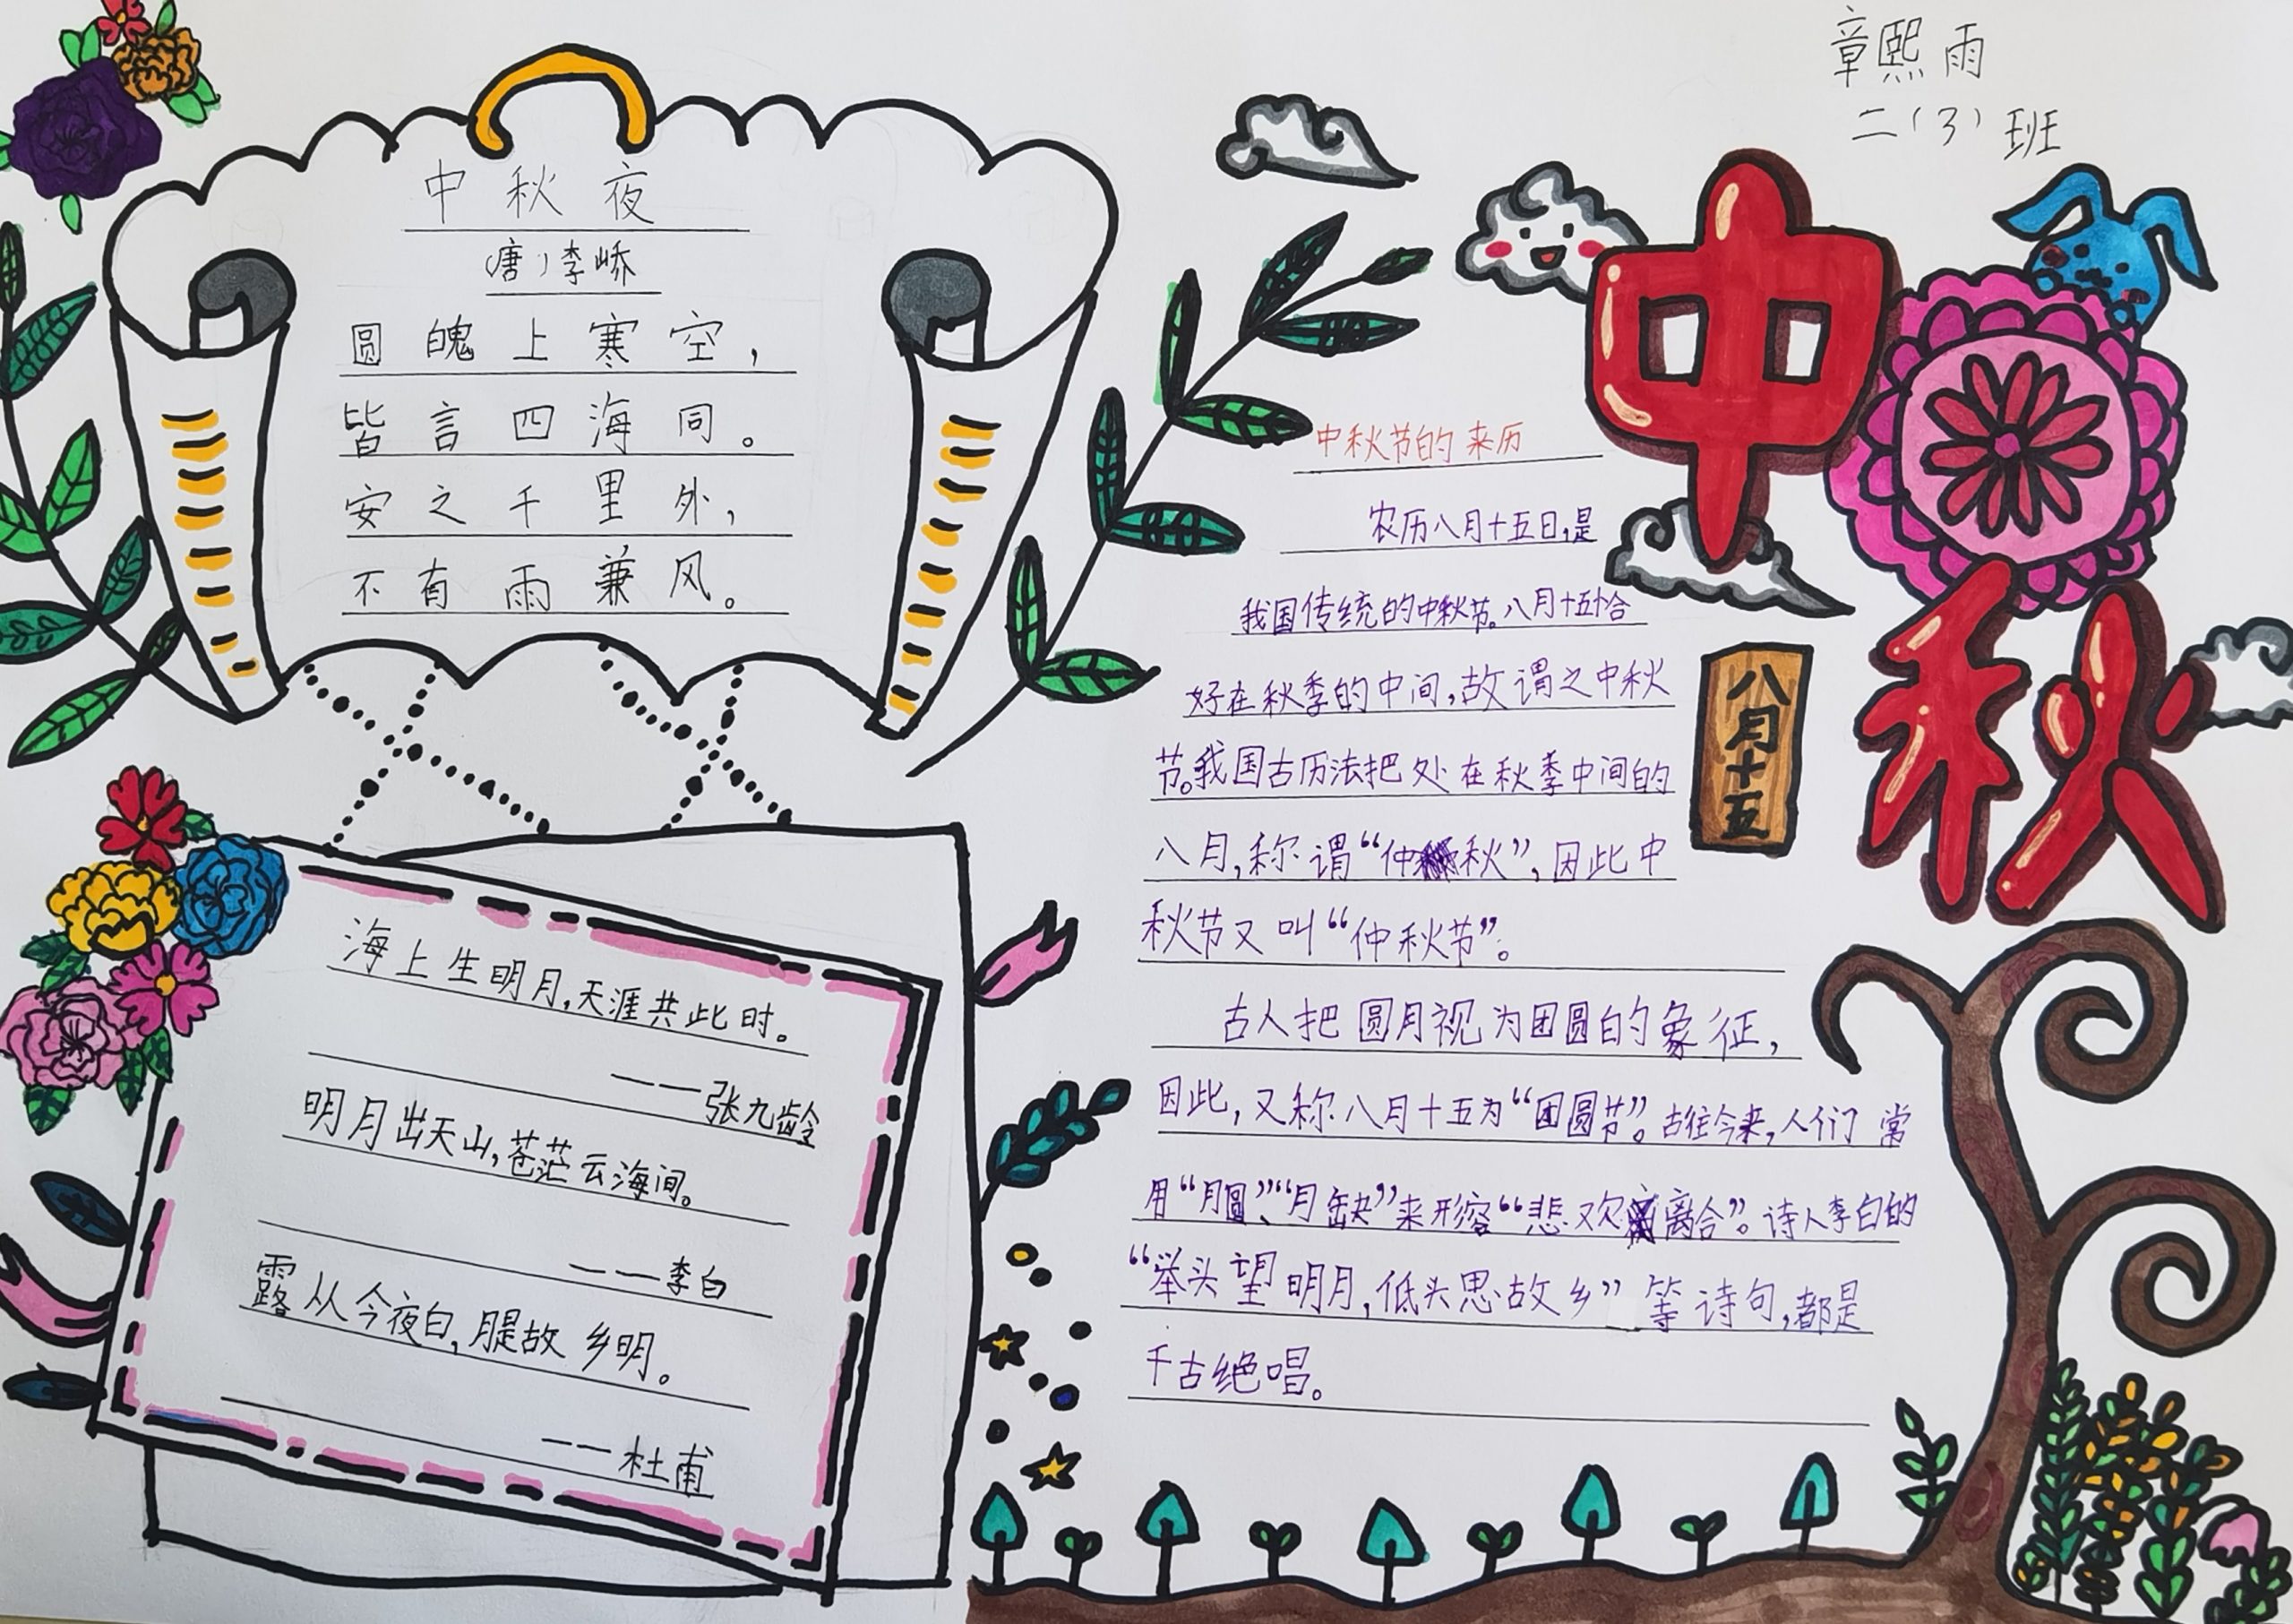 章熙雨
二(3)班
中秋夜
(唐)李峤
圆魄上寒空,
皆言四海同。
安之千里外,
不有雨兼风。
海上生明月,天涯共此时。
——张九龄
明月出天山,苍茫云海间。
——李白
露从今夜白,腥故乡明。
——杜甫
中秋
八月十五
中秋节的来历
农历八月十五日,是
我国传统的中秋节。八月十五恰
好在秋季的中间,故谓之中秋
节。我国古历法把处在秋季中间的
八月,称谓“仲秋”,因此中
秋节又叫“仲秋节”。
古人把圆月视为团圆的象征,
因此,又称八月十五为“团圆节”。古往今来,人们常
用“月圆”、“月缺”来形容“悲欢离合”。诗人李白的
“举头望明月,低头思故乡”等诗句,都是
千古绝唱。